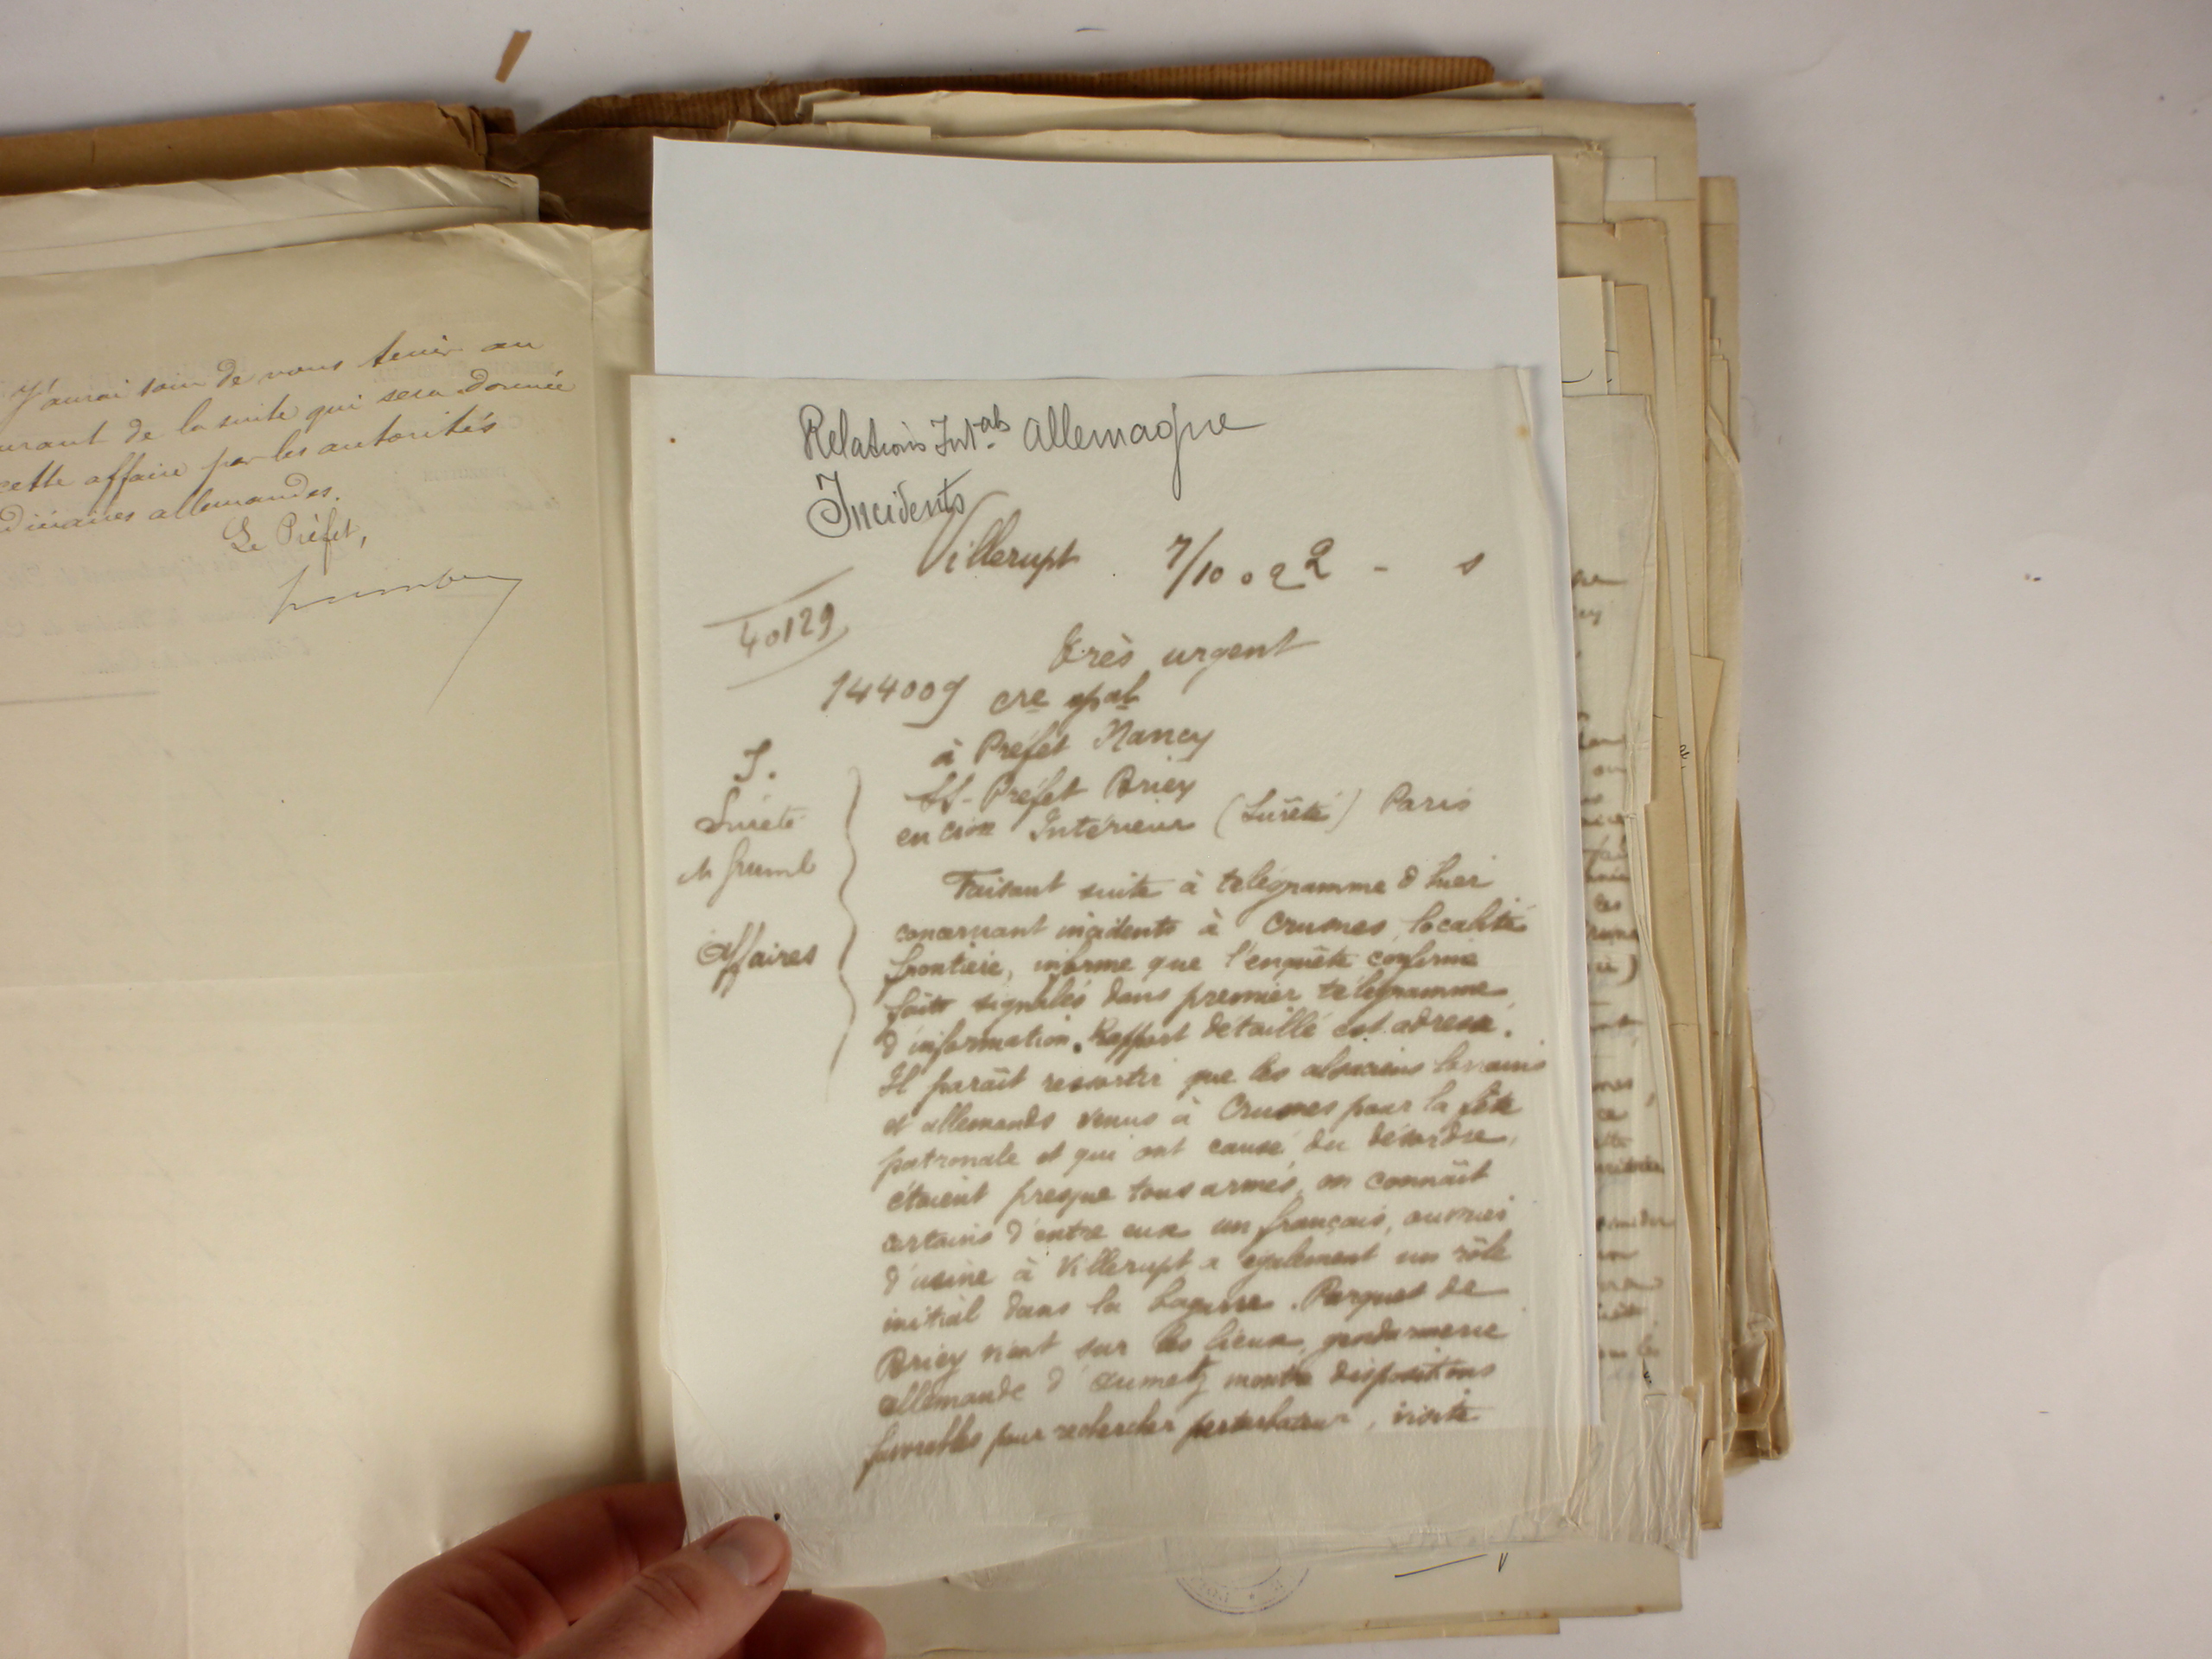 J'aurai soin de vous tenir au
urant de la suite qui sera donnée
cette affaire par les autorités
diciaires allemandes.
Le Préfet,
Relations Int.ales Allemagne
Incidents
Villerupt 7/10 - s
40129
Très urgent
144009 cre spal
à Préfet Nancy
SS-Préfet Briey
en cion Intérieur (Sûreté) Paris
S.
Sûreté
Affaires
Faisant suite à télégramme d'hier
concernant incidents à Crusnes, localité
frontière, informe que l'enquête confirme
faits signalés dans premier télégramme
d'information. Rapport détaillé est adressé.
Il paraît ressortir que les alsaciens lorrains
et allemands venus à Crusnes pour la fête
patronale et qui ont causé du désordre,
étaient presque tous armés, on connaît
certains d'entre eux un français, ouvrier
d'usine à Villerupt a également un rôle
initial dans la bagarre. Parquet de
Briey vient sur les lieux, gendarmerie
allemande d'Aumetz montre dispositions
favorables pour rechercher perturbateurs,